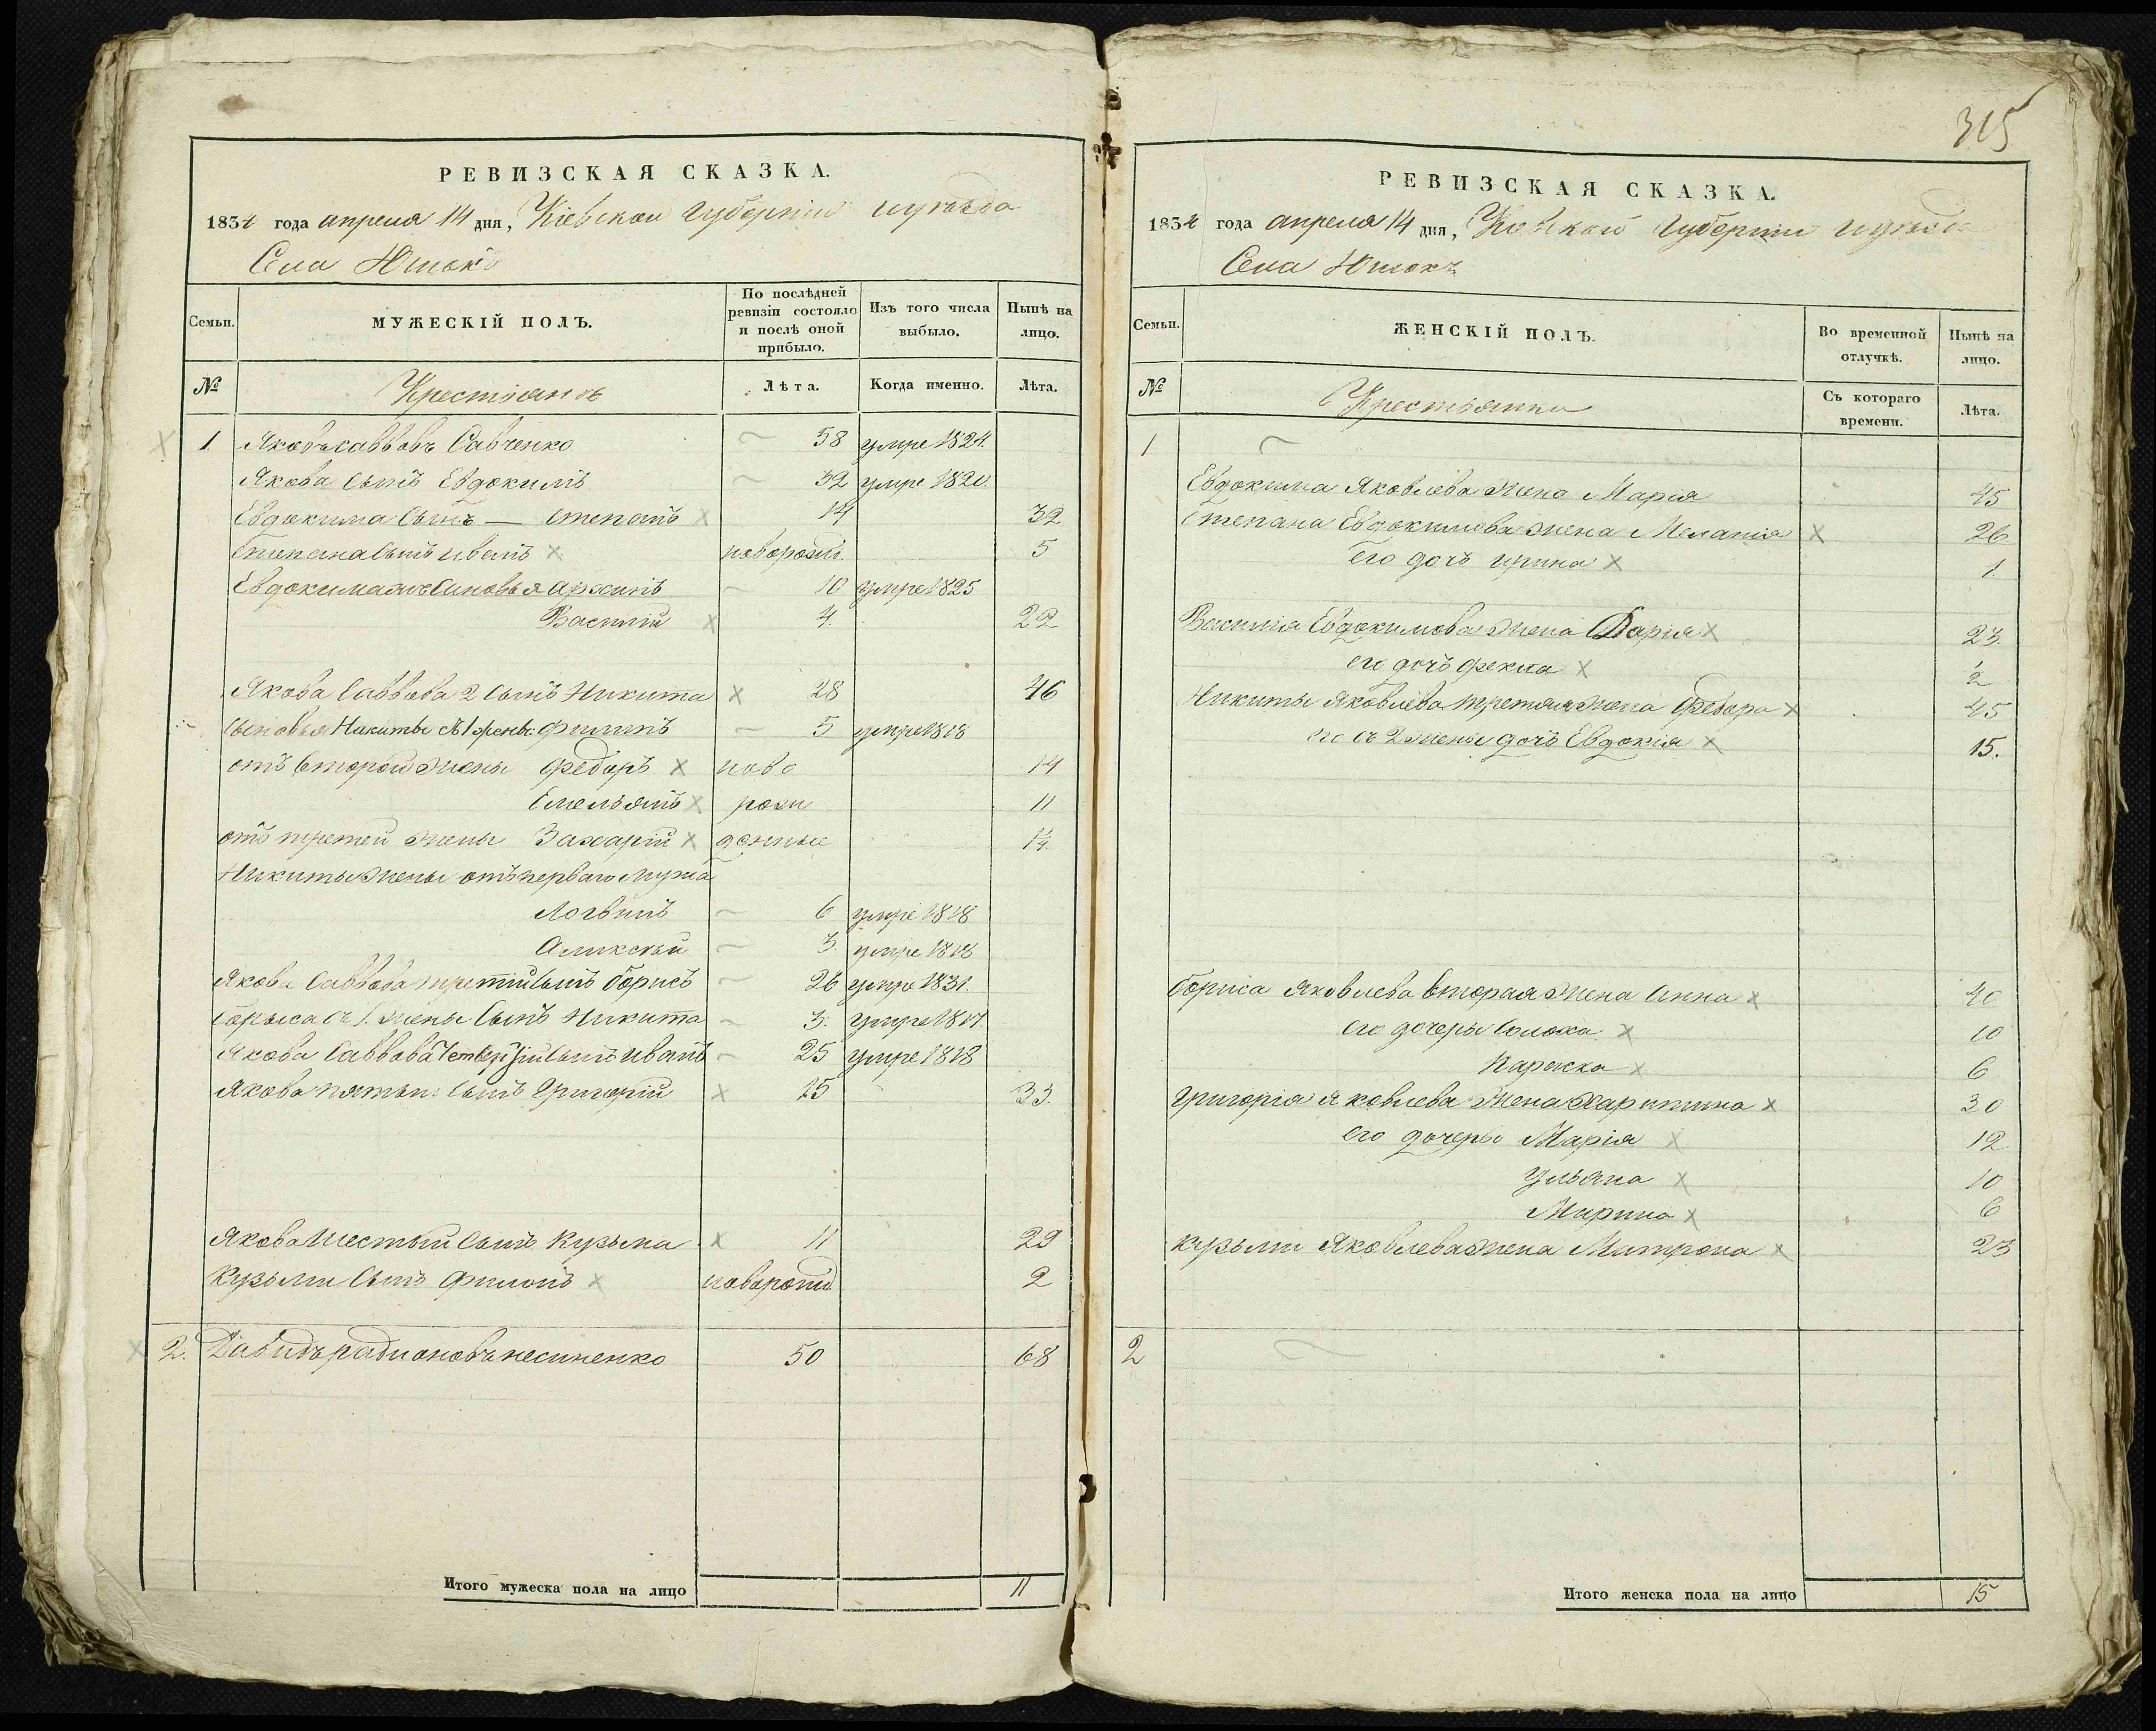 315
РЕВИЗСКАЯ СКАЗКА.
1834 года апреля 14 дня, Кіевской Губерніи и уезда
Села Юшокъ
Семьи. МУЖЕСКІЙ ПОЛЪ. По послѣдней ревизіи состояло и послѣ оной прибыло. Изъ того числа выбыло. Нынѣ на лицо.
№ Крестьянъ Лѣта. Когда именно. Лѣта.
1 Яковъ Саввовъ Савченко 58 умре 1824.
Якова Сынъ Евдокимъ 32 умре 1820.
Евдокима Сынъ — Степанъ 14 32
Степана Сынъ Иванъ новорожд. 5
Евдокима Сыновья Архипъ 10 умре 1825
Василій 4. 22
Якова Саввова 2 Сынъ Никита 28 46
Сыновья Никиты съ 1 жены: Филипъ 5 умре 1818
отъ второй жены Федоръ ново 14
Емельянъ рож 11
отъ третей жены Захарій денные 1/4.
Никиты жены отъ перваго мужа
Логвинъ 6 умре 1818
Аликсѣй 3. умре 1818
Якова Саввова третій Сынъ Борисъ 26 умре 1831.
Борыса съ 1. жены Сынъ Никита 3. умре 1817.
Якова Саввова Сынъ Иванъ 25 умре 1818
Якова пятый Сынъ Григорій 15 33.
Якова Шестый Сынъ Кузьма 11 29
Кузьми Сынъ Филонъ новорожд. 2
2. Давидъ Радионовъ Несиненко 50 68
Итого мужеска пола на лицо 11
РЕВИЗСКАЯ СКАЗКА.
1834 года апреля 14 дня, Кіевской Губерніи и уезда
Села Юшокъ
Семьи. ЖЕНСКІЙ ПОЛЪ. Во временной отлучкѣ. Нынѣ на лицо.
№ Крестьянки Съ котораго времени. Лѣта.
1
Евдокима Яковлева жена Марія 45
Степана Евдокимова жена Меланія 26.
Его дочь Ирина 1.
Василія Евдокимова жена Дарія 23.
его дочь Фекла 1/2
Никиты Яковлева третяя жена Федора 45
его съ 2 жены дочь Евдокія 15.
Бориса Яковлева вторая жена Анна 40
его дочеры Солоха 10
Параска 6
Григорія Яковлева жена Харитина 30
его дочеры Марія 12
Ульяна 10
Марина 6
Кузьми Яковлева жена Матрона 23
2
Итого женска пола на лицо 15